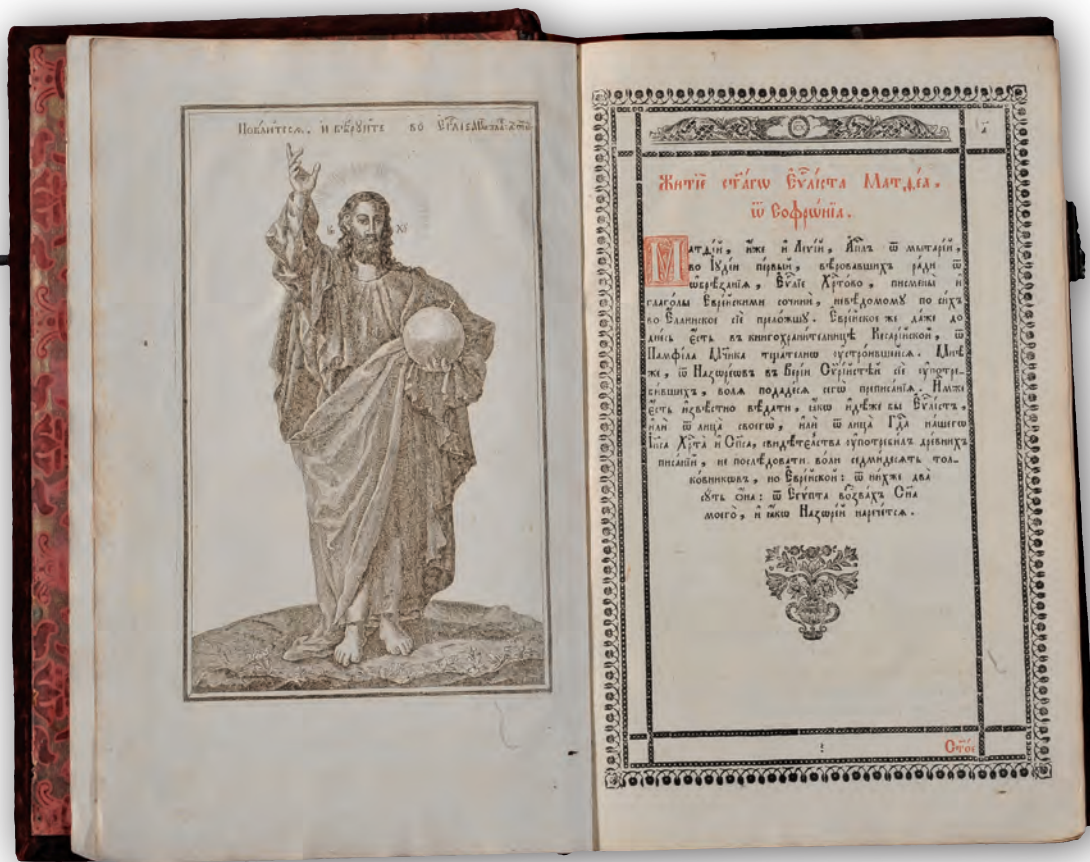 Покайтеся, и вѣруйте во Еѵⷢ҇лїе
І҃с Х҃с
а҃
Житїе ст҃а́гѡ Еѵⷢ҇лі́ста Матѳе́а,
ѿ Софрѡ́нїа.
Матѳі́й, и҆́же и҆ Леѵі́й, А҆пⷭ҇лъ ѿ мытаре́й,
во І҆ꙋде́и пе́рвый, вѣ́ровавшихъ ра́ди ѿ
ѡ҆брѣ́занїѧ, Е҆ѵⷢ҇лїе Хрⷭ҇то́во, писмены̀ и҆
глаго́лы Е҆вре́йскими сочинѝ, невѣ́домомꙋ по си́хъ
во Е҆́ллинское сїѐ прело́жшꙋ. Е҆вре́йское же да́же до
дне́сь є҆́сть въ книгохрани́телницѣ Кесарі́йской, ѿ
Памфі́ла Мч҃ника тща́телнѡ ᲂу҆стро́ившейсѧ. Мнѣ́
же, ѿ Назѡре́ѡвъ въ Вері́и Сѵрі́йстѣй сїѐ ᲂу҆потре-
би́вшихъ, во́лѧ подаде́сѧ сегѡ̀ преписа́нїѧ. И҆́мже
є҆́сть и҆звѣ́стно вѣ́дати, ꙗ҆́кѡ и҆дѣ́же бы Е҆ѵⷢ҇лі́стъ,
и҆лѝ ѿ лица̀ своегѡ̀, и҆лѝ ѿ лица̀ Гдⷭ҇а на́шегѡ
І҆и҃са Хрⷭ҇та̀ и҆ Сп҃са, свидѣ́телства ᲂу҆потреби́лъ дре́внихъ
писа́нїй, не послѣ́довати во́ли седми́десѧть тол-
ко́вникѡвъ, но Е҆вре́йской: ѿ ни́хже два̀
сꙋ́ть ѻ҆́на: ѿ Е҆гѵ́пта воззва́хъ Сн҃а
моего̀, и҆ ꙗ҆́кѡ Назѡре́й нарече́тсѧ.
Ст҃о́е